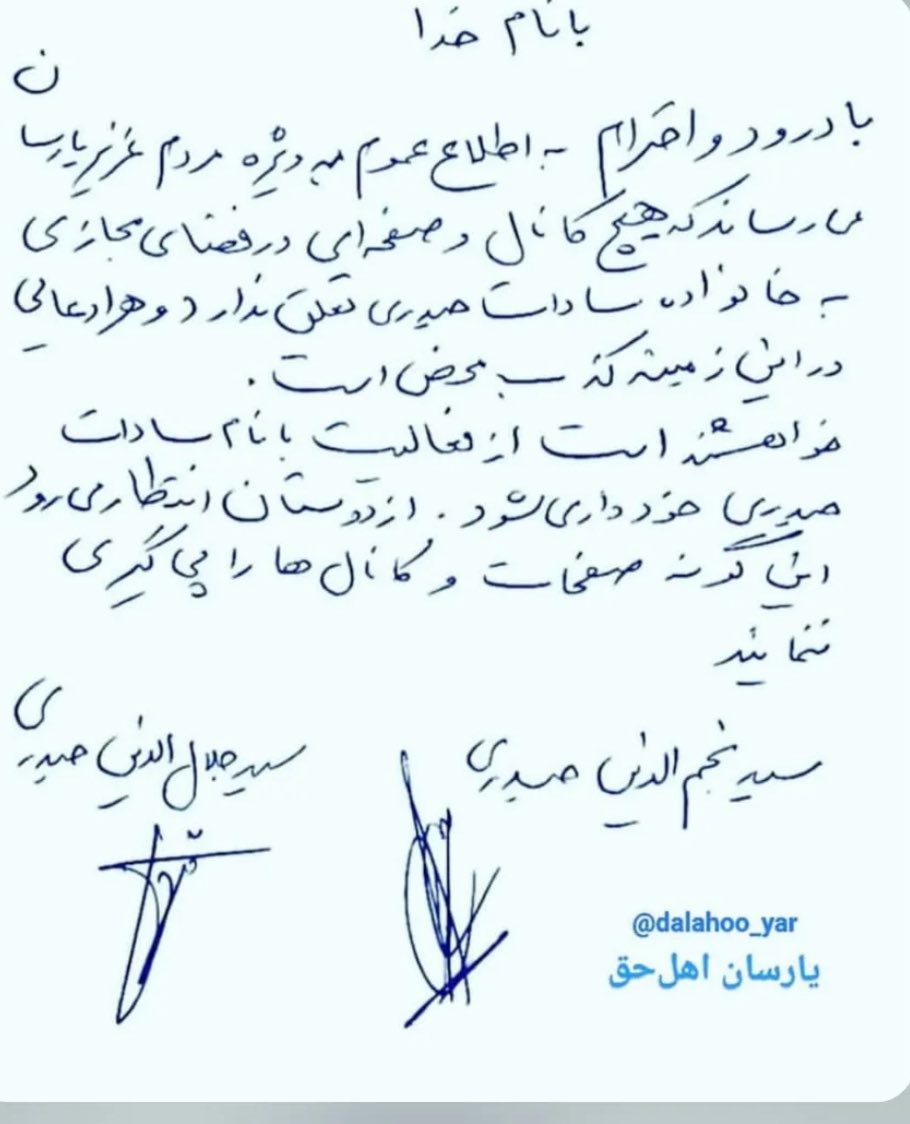 با نام خدا
با درود و احترام به اطلاع عموم به ویژه مردم عزیز یارسان
می رساند که هیچ کانال و صفحه ای در فضای مجازی
به خانواده سادات حیدری تعلق ندارد و هر ادعایی
در این زمینه کذب محض است.
خواهشمند است از فعالیت با نام سادات
حیدری خودداری شود. از دوستان انتظار می رود
این گونه صفحات و کانال ها را پی گیری
ننمایند
سید نجم الدین حیدری
سید جلال الدین حیدری
@dalahoo_yar
یارسان اهل حق